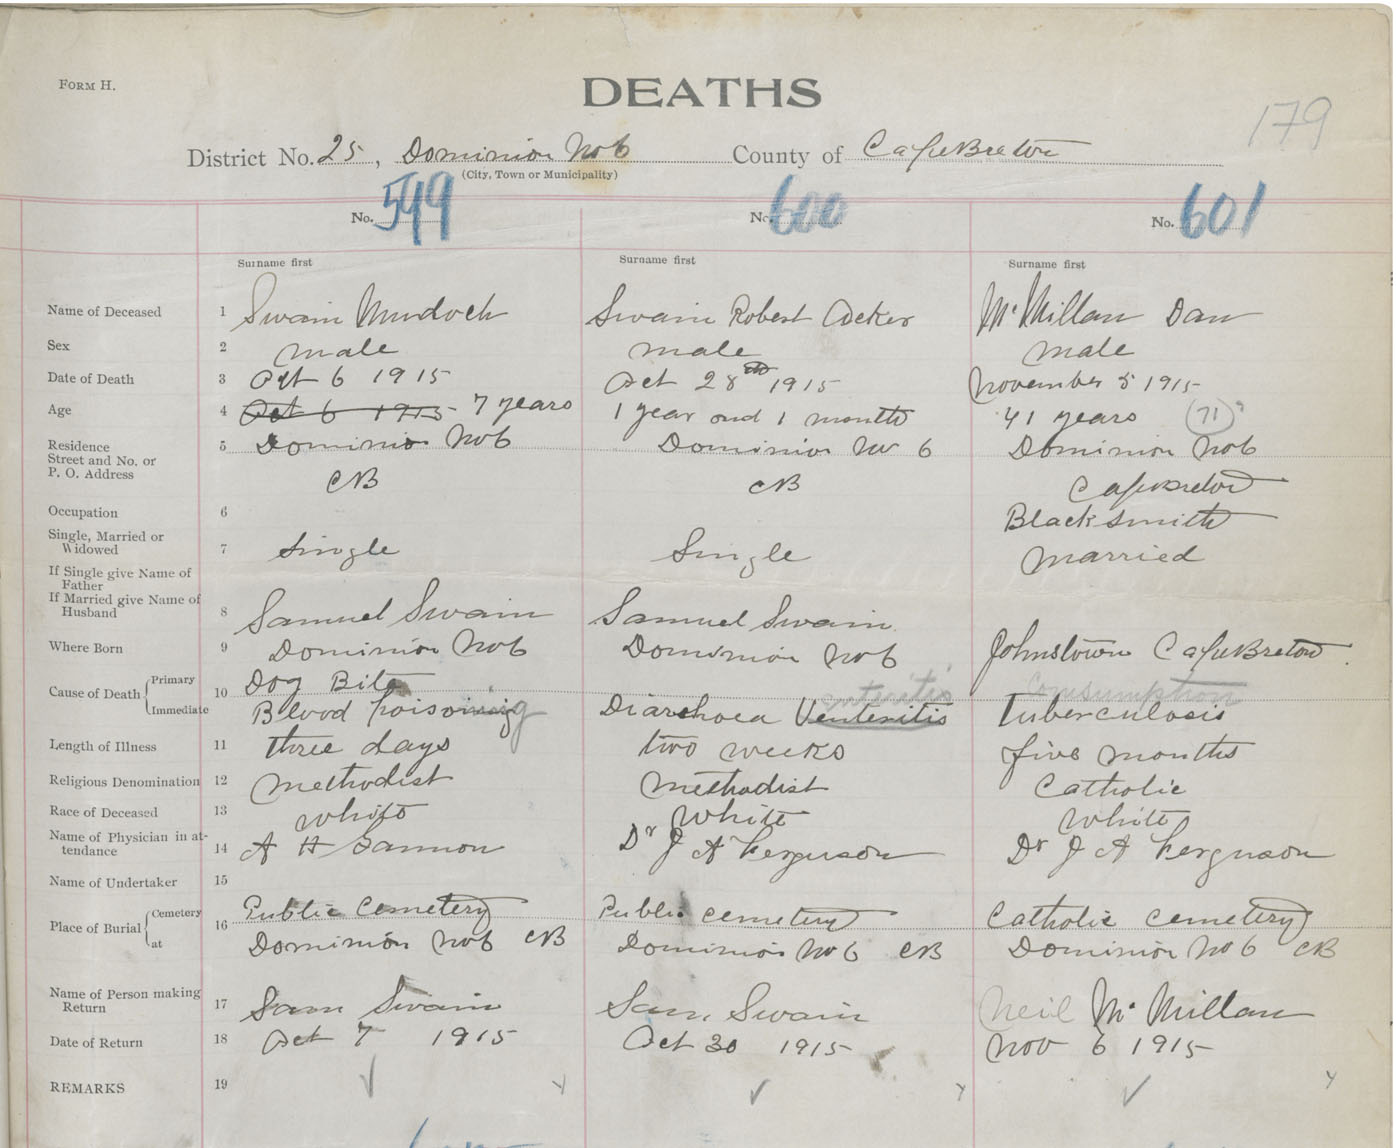 FORM H.
DEATHS
179
District No. 25, Dominion No 6 County of Cape Breton
(City, Town or Municipality)
No. 599 No. 600 No. 601
Surname first Surname first Surname first
Name of Deceased 1 Swain Murdoch Swain Robert Acker McMillan Dan
Sex 2 male male male
Date of Death 3 Oct 6 1915 Oct 28th 1915 November 5 1915
Age 4 Oct 6 1915 7 years 1 year and 1 month 41 years (71)?
Residence
Street and No. or
P. O. Address 5 Dominion No 6 Dominion No 6 Dominion No 6
CB CB Cape Breton
Occupation 6 Blacksmith
Single, Married or
Widowed 7 Single Single married
If Single give Name of
Father
If Married give Name of
Husband 8 Samuel Swain Samuel Swain
Where Born 9 Dominion No 6 Dominion No 6 Johnstown Cape Breton
Cause of Death Primary 10 Dog Bite enteritis Consumption
Immediate Blood poisoning Diarrhoea Tuberculosis
Length of Illness 11 three days two weeks five months
Religious Denomination 12 methodist methodist Catholic
Race of Deceased 13 white white white
Name of Physician in at-
tendance 14 A H Sannon Dr J A Ferguson Dr J A Ferguson
Name of Undertaker 15
Place of Burial Cemetery 16 Public Cemetery Public cemetery Catholic cemetery
at Dominion No 6 CB Dominion No 6 CB Dominion No 6 CB
Name of Person making
Return 17 Sam Swain Sam Swain Neil McMillan
Date of Return 18 Oct 7 1915 Oct 30 1915 Nov 6 1915
REMARKS 19